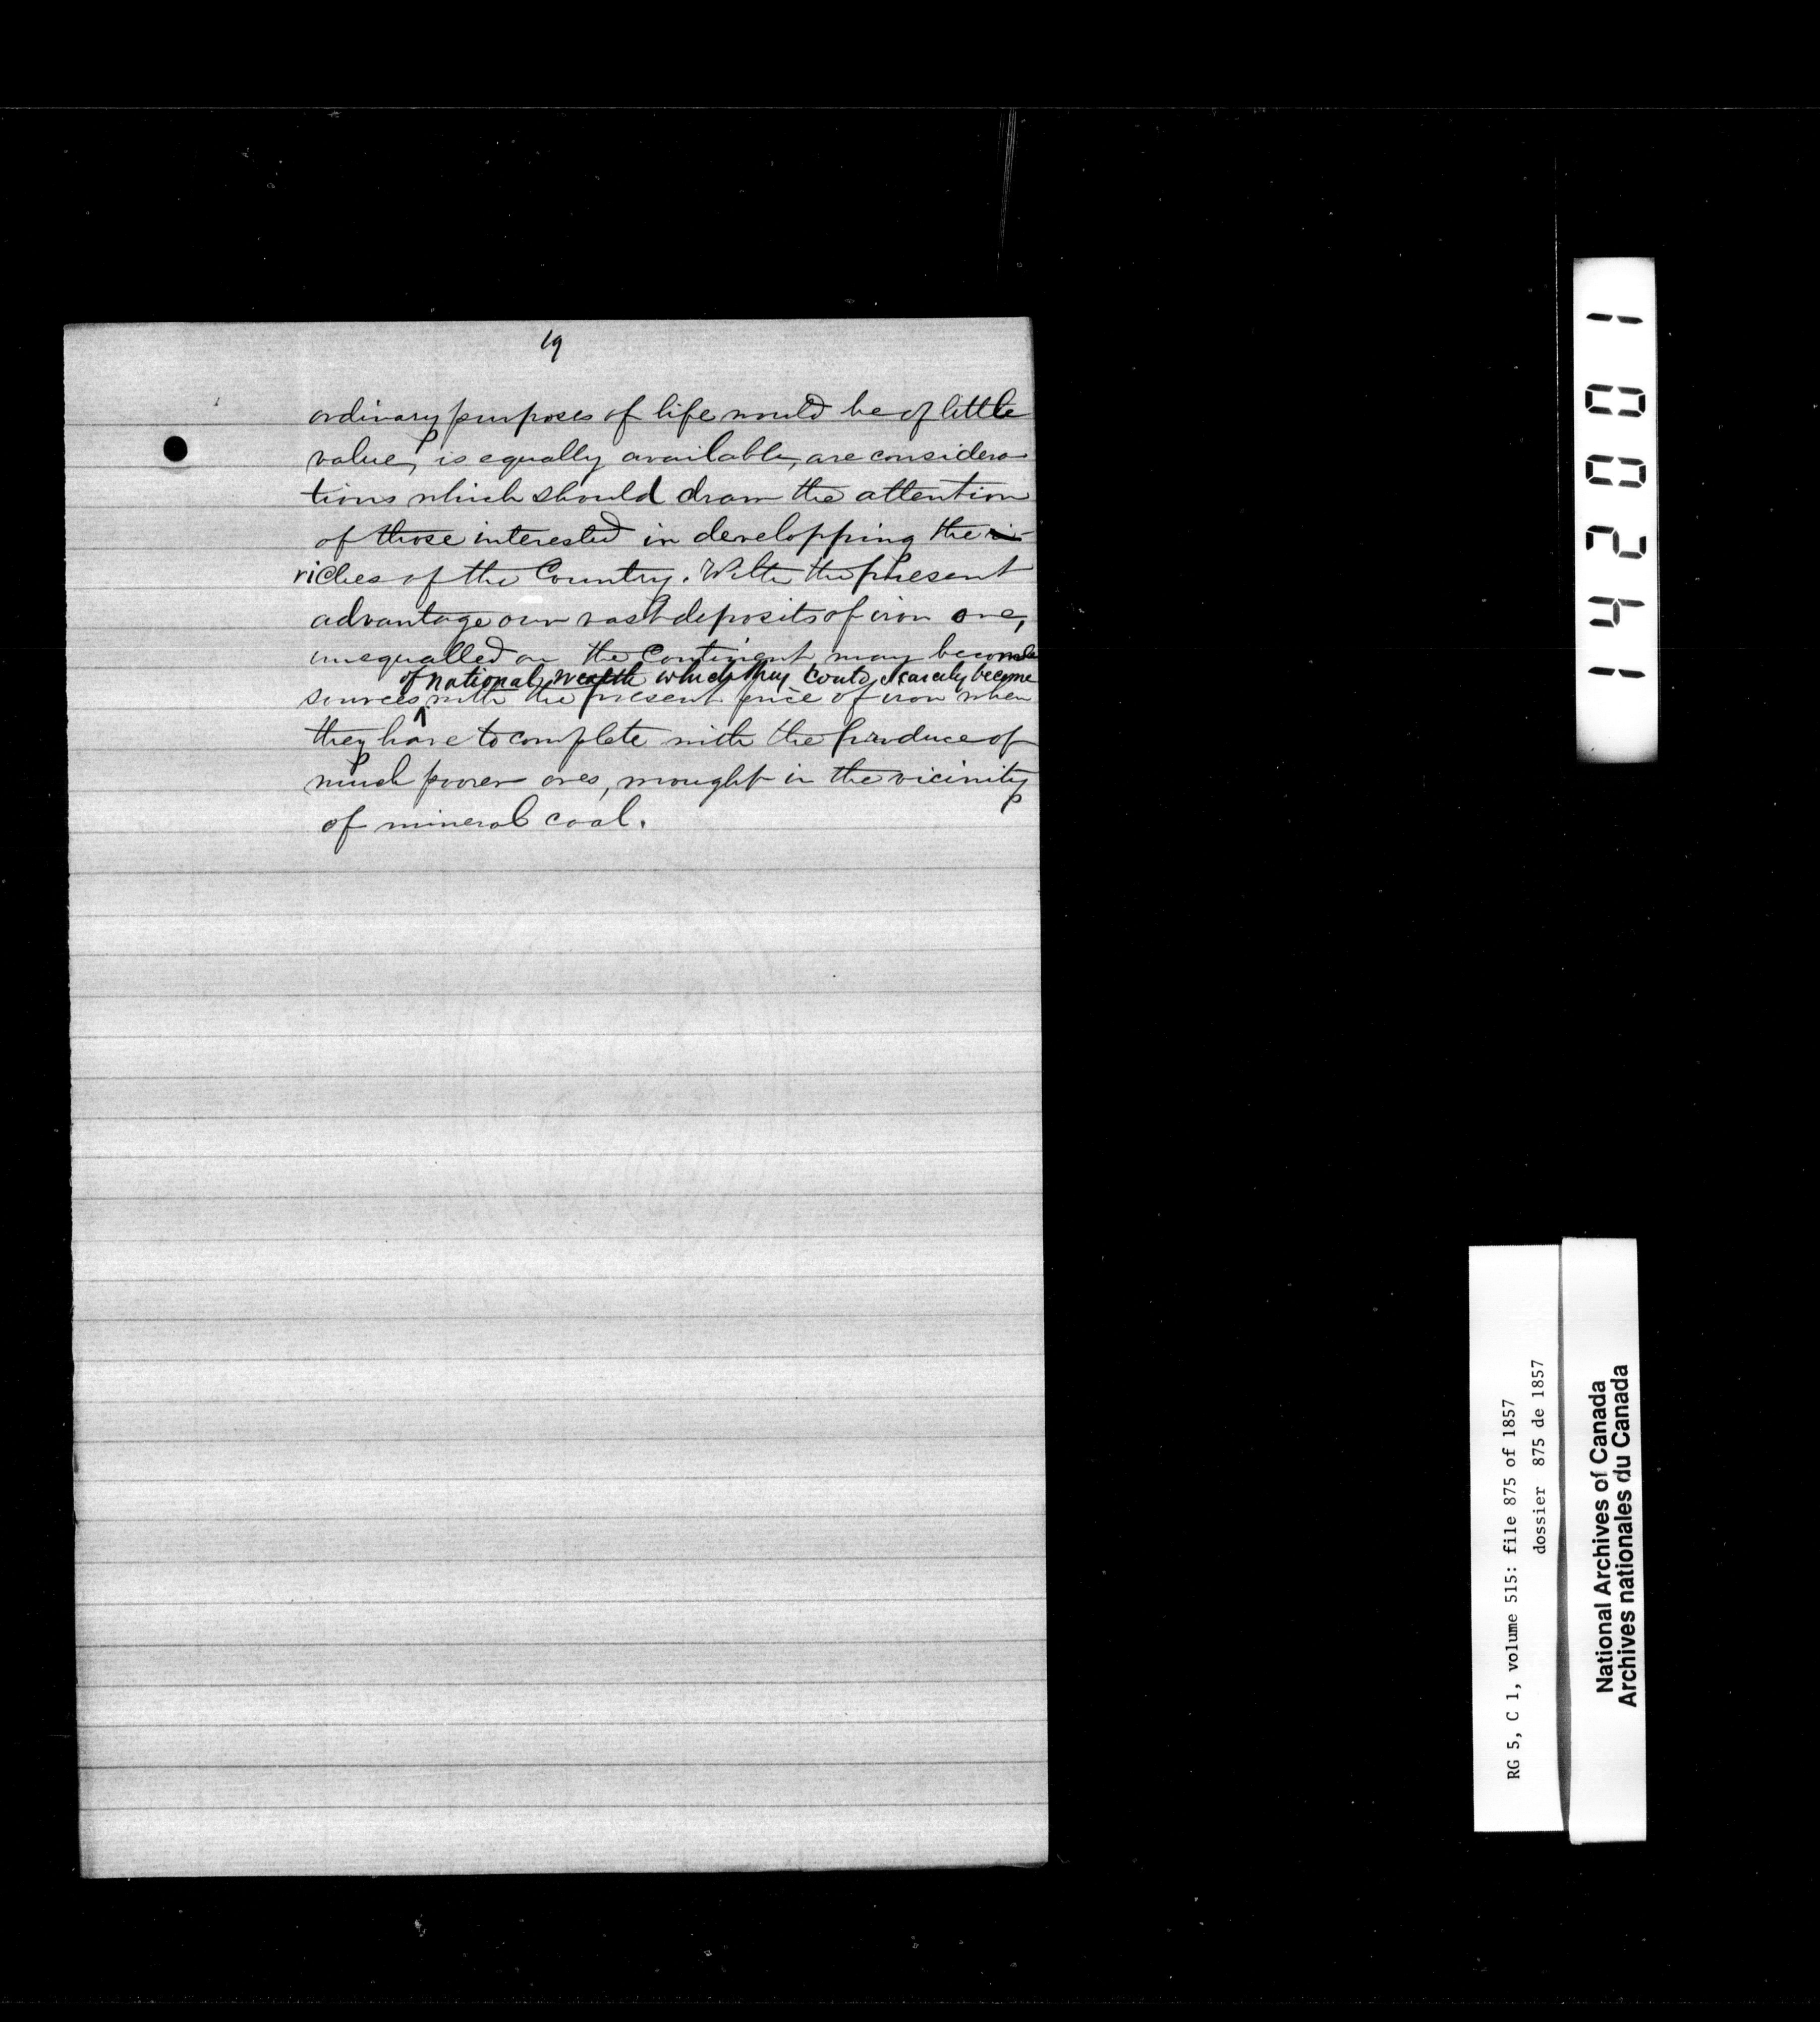 19
ordinary purposes of life would be of little
value, is equally available, are considera
tions which should draw the attention
of those interested in developping the
riches of the Country. With the present
advantage our vast deposits of iron ore,
unequalled on the Continent may become
of national wealth which they could scarcely become
sources with the present price of iron when
they have to complete with the produce of
much poorer ores, wrought in the vicinity
of mineral coal.
142001
RG 5, C 1, volume 515: file 875 of 1857
dossier 875 de 1857
National Archives of Canada
Archives nationales du Canada